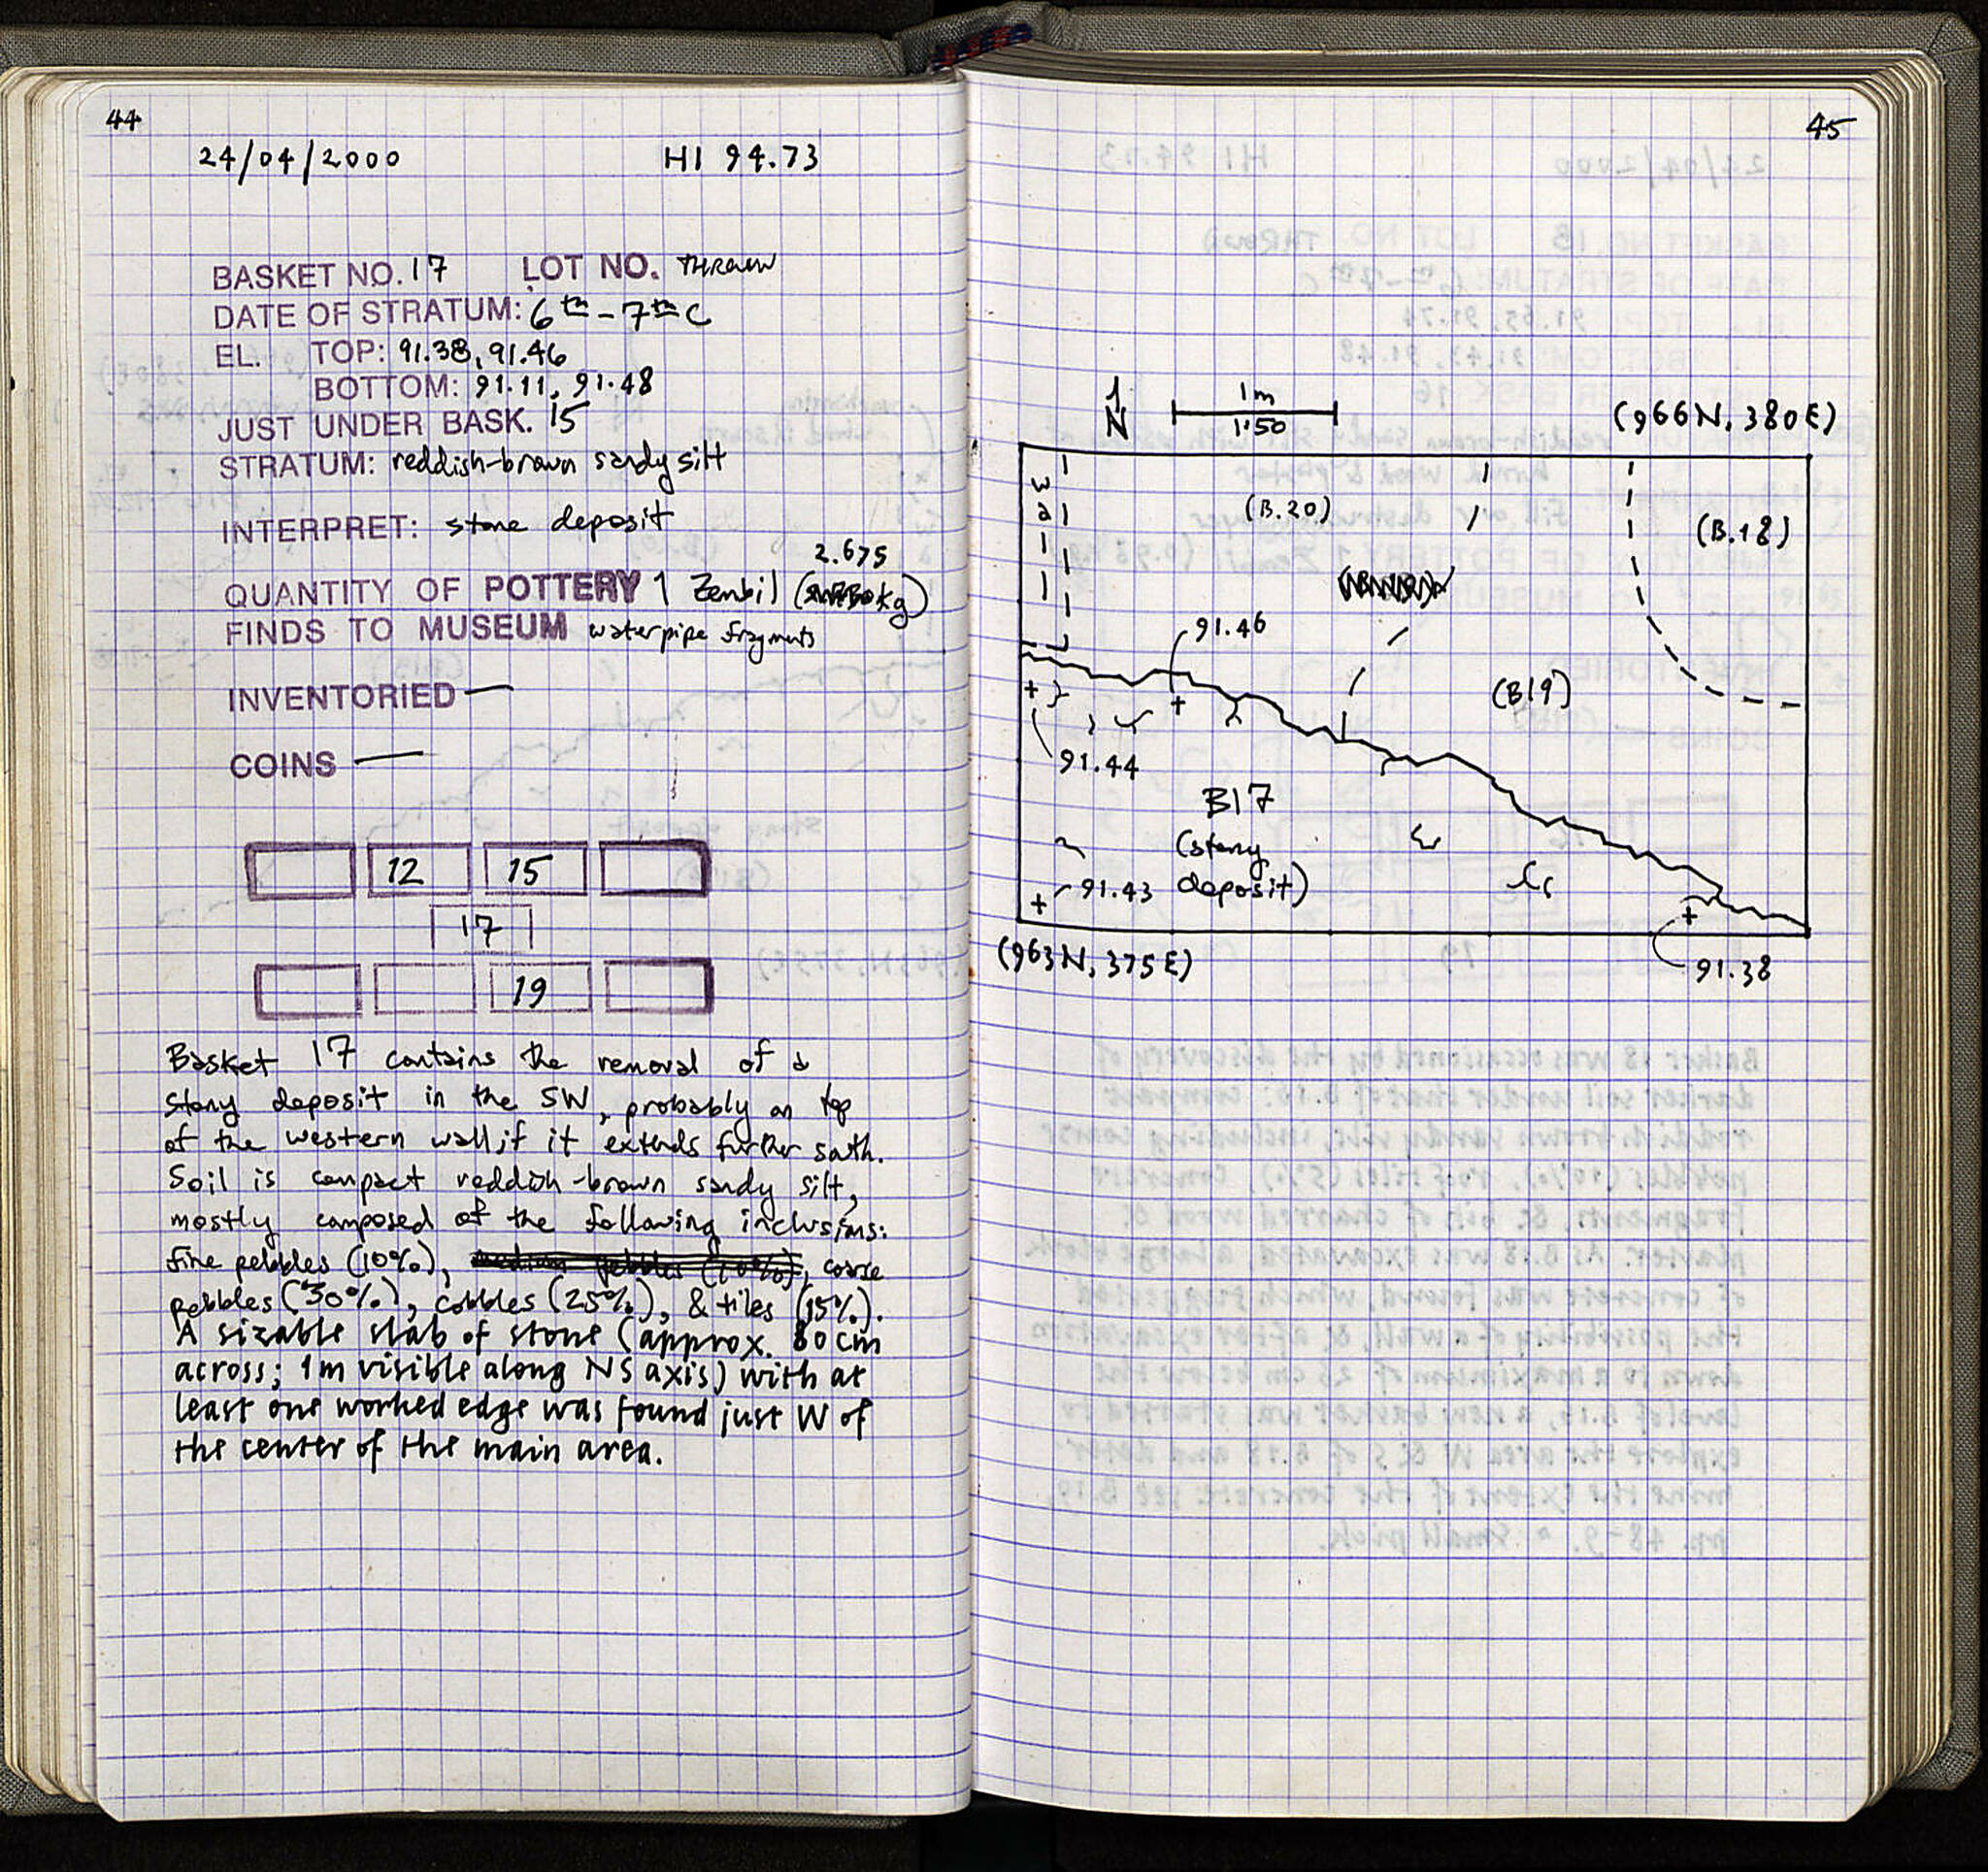 44
24/04/2000 HI 94.73
BASKET NO. 17 LOT NO. THROWN
DATE OF STRATUM: 6th-7th C
EL. TOP: 91.38, 91.46
BOTTOM: 91.11, 91.48
JUST UNDER BASK. 15
STRATUM: reddish-brown sandy silt
INTERPRET: stone deposit
2.675
QUANTITY OF POTTERY 1 Zembil (kg)
FINDS TO MUSEUM waterpipe fragments
INVENTORIED —
COINS —
12 15
17
19
Basket 17 contains the removal of a
stony deposit in the SW, probably on top
of the western wall, if it extends further south.
Soil is compact reddish-brown sandy silt,
mostly composed of the following inclusions:
fine pebbles (10%), medium pebbles (10%), coarse
pebbles (30%), cobbles (25%), & tiles (15%).
A sizable slab of stone (approx. 80 cm
across; 1m visible along NS axis) with at
least one worked edge was found just W of
the center of the main area.
45
N
1m
1:50
(966N, 380E)
wall
(B.20)
(B.18)
91.46
(B19)
91.44
B17
(stony
deposit)
91.43
(963N, 375E)
91.38